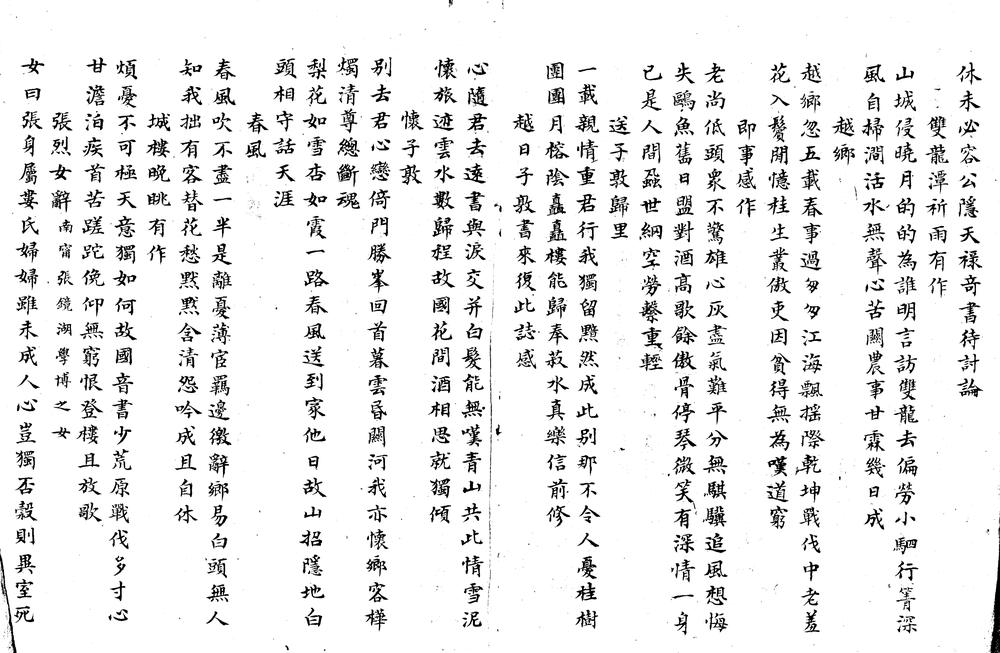 休未必容公隱天祿奇書待討論
雙龍潭祈雨有作
山城侵曉月的的為誰明言訪雙龍去偏勞小駟行箐深
風自掃澗活水無聲心苦關農事甘霖幾日成
越鄉
越鄉忽五載春事過匆匆江海飄搖際乾坤戰伐中老羞
花入鬢閒憶桂生叢傲吏因貧得無為嘆道窮
即事感作
老尚低頭眾不驚雄心灰盡氣難平分無騏驥追風想悔
失鷗魚舊日盟對酒高歌餘傲骨停琴微笑有深情一身
已是人間蝨世網空勞繫重輕
送子敦歸里
一載親情重君行我獨留黯然成此別那不令人憂桂樹
團團月榕陰矗矗樓能歸奉菽水真樂信前修
越日子敦書來復此誌感
心隨君去遠書與淚交并白髮能無嘆青山共此情雪泥
懷旅迹雲水數歸程故國花間酒相思就獨傾
懷子敦
別去君心戀倚門勝峯回首暮雲昏關河我亦懷鄉客樺
燭清尊總斷魂
梨花如雪杏如霞一路春風送到家他日故山招隱地白
頭相守話天涯
春風
春風吹不盡一半是離憂薄宦羈邊徼辭鄉易白頭無人
知我拙有客替花愁默默含清怨吟成且自休
城樓晚眺有作
煩憂不可極天意獨如何故國音書少荒原戰伐多寸心
甘澹泊疾首苦蹉跎俛仰無窮恨登樓且放歌
張烈女辭 南甯張鏡湖學博之女
女曰張身屬婁氏婦婦雖未成人心豈獨否穀則異室死